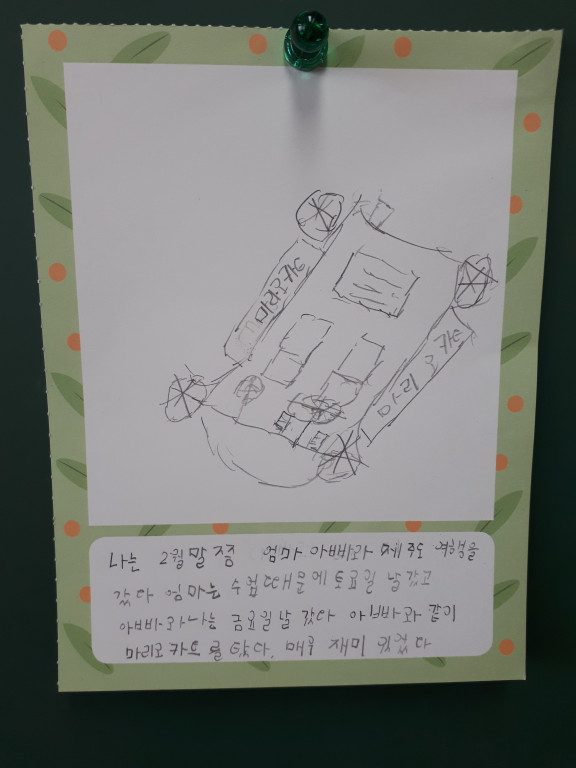 마리오카트
마리오카트
나는 2월말 쯤 엄마 아빠와 제주도 여행을
갔다 엄마는 수업 때문에 토요일 날 갔고
아빠와 나는 금요일날 갔다 아빠와 같이
마리오카트 를 탔다. 매우 재미 있었다